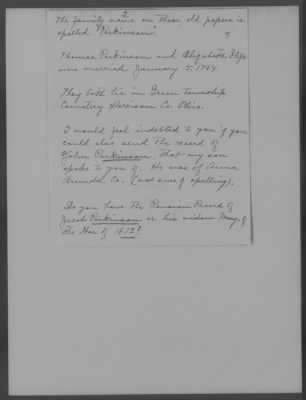 The family name on these old papers is
spelled "Parkinson".
Thomas Parkinson and Elizabeth
were married January 5, 1764
They both lie in Green township
Cemetery Harrison Co. Ohio.
I would feel indebted to you if you
could also send the record of
John Parkinson. That my son
spoke to you of. He was of Anna
Arundel Co. (not sure of spelling).
Do you have the Pension Record of
Jacob Parkinson or his widow Mary, of
the War of 1812?